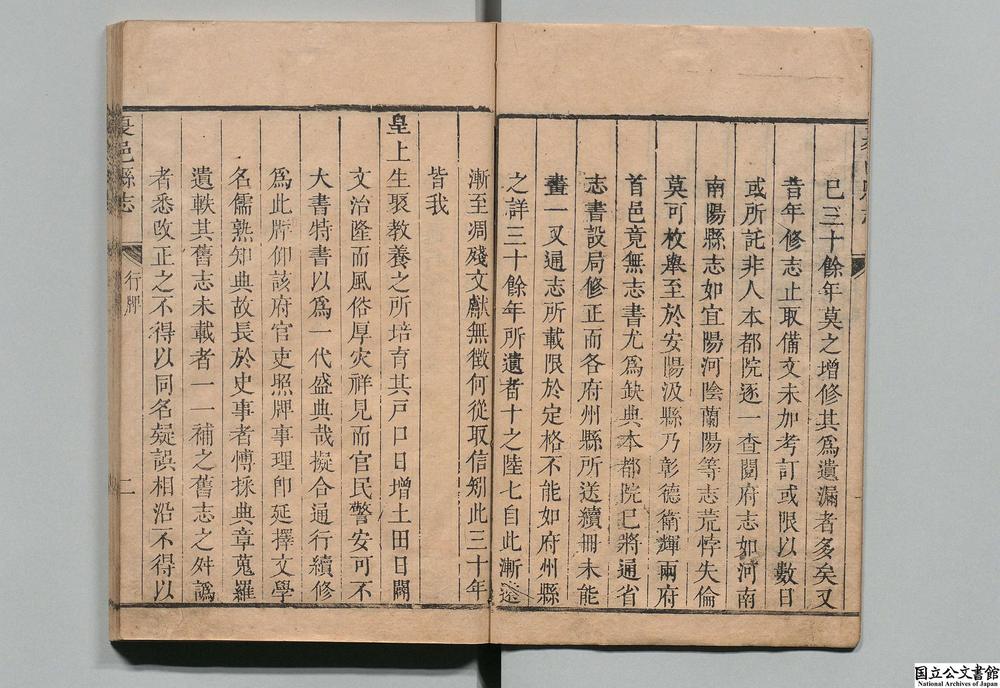 巳三十餘年莫之增修其爲遺漏者多矣又
昔年修志止取備文未加考訂或限以數日
或所託非人本都院逐一查閱府志如河南
南陽縣志如宜陽河陰蘭陽等志荒悖失倫
莫可枚舉至於安陽汲縣乃彰德衛輝兩府
首邑竟無志書尤爲缺典本都院已將通省
志書設局修正而各府州縣所送續冊未能
畫一又通志所載限於定格不能如府州縣
之詳三十餘年所遺者十之陸七自此漸遠
漸至凋殘文獻無徵何從取信矧此三十年
皆我
皇上生聚教養之所培育其戸口日增土田日闢
文治隆而風俗厚灾祥見而官民警安可不
大書特書以爲一代盛典哉擬合通行續修
爲此牌仰該府官吏照牌事理卽延擇文學
名儒熟知典故長於史事者愽採典章蒐羅
遺軼其舊志未載者一一補之舊志之舛譌
者悉改正之不得以同名疑誤相沿不得以
夏邑縣志
行牌
二
国立公文書館
National Archives of Japan